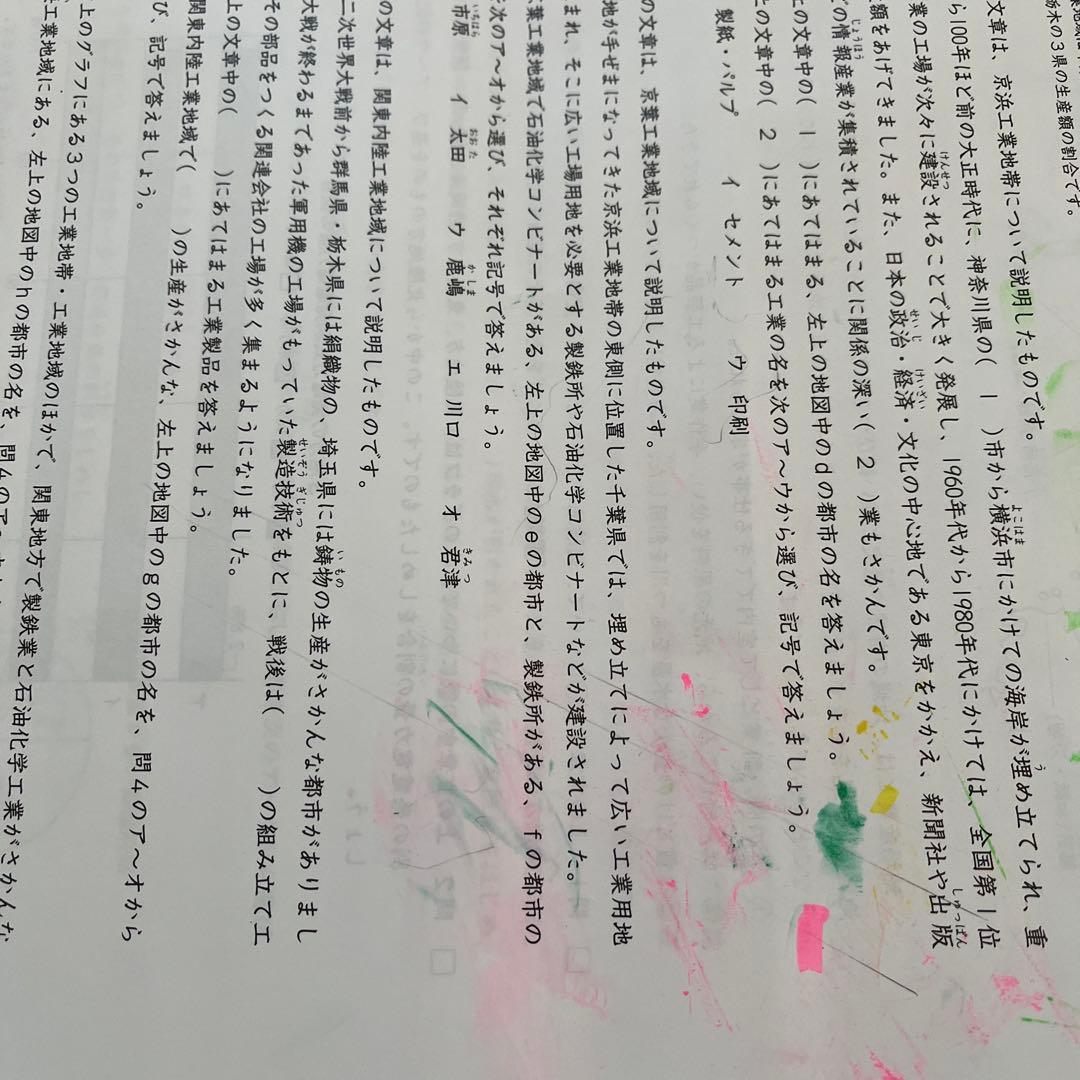 栃木の3県の生産額の割合です。
文章は、京浜工業地帯について説明したものです。
ら100年ほど前の大正時代に、神奈川県の( 1 )市から横浜市にかけての海岸が埋め立てられ、重
業の工場が次々に建設されることで大きく発展し、1960年代から1980年代にかけては、全国第1位
額をあげてきました。また、日本の政治・経済・文化の中心地である東京をかかえ、新聞社や出版
どの情報産業が集積されていることに関係の深い( 2 )業もさかんです。
上の文章中の( 1 )にあてはまる、左上の地図中のdの都市の名を答えましょう。
上の文章中の( 2 )にあてはまる工業の名を次のア～ウから選び、記号で答えましょう。
製紙・パルプ イ セメント ウ 印刷
の文章は、京葉工業地域について説明したものです。
地が手ぜまになってきた京浜工業地帯の東側に位置した千葉県では、埋め立てによって広い工業用地
まれ、そこに広い工場用地を必要とする製鉄所や石油化学コンビナートなどが建設されました。
葉工業地域で石油化学コンビナートがある、左上の地図中のeの都市と、製鉄所がある、fの都市の
を次のア～オから選び、それぞれ記号で答えましょう。
市原 イ 太田 ウ 鹿嶋 エ 川口 オ 君津
の文章は、関東内陸工業地域について説明したものです。
二次世界大戦前から群馬県・栃木県には絹織物の、埼玉県には鋳物の生産がさかんな都市がありまし
大戦が終わるまであった軍用機の工場がもっていた製造技術をもとに、戦後は( )の組み立て工
その部品をつくる関連会社の工場が多く集まるようになりました。
上の文章中の( )にあてはまる工業製品を答えましょう。
関東内陸工業地域で( )の生産がさかんな、左上の地図中のgの都市の名を、問4のア～オから
び、記号で答えましょう。
上のグラフにある3つの工業地帯・工業地域のほかで、関東地方で製鉄業と石油化学工業がさかんな
工業地域にある、左上の地図中のhの都市の名を、問4のア